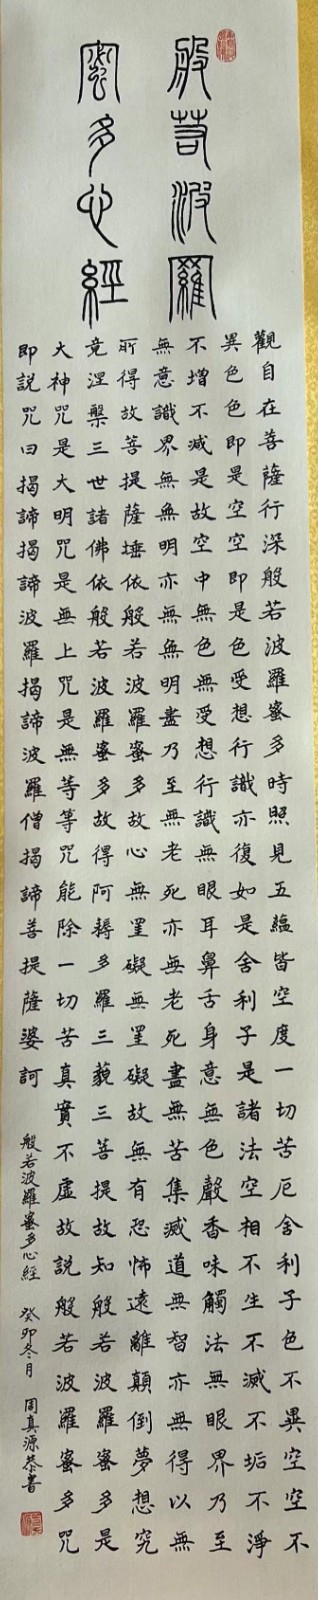 般若波羅
蜜多心經
觀自在菩薩行深般若波羅蜜多時照見五蘊皆空度一切苦厄舍利子色不異空空不
異色色即是空空即是色受想行識亦復如是舍利子是諸法空相不生不滅不垢不淨
不增不減是故空中無色無受想行識無眼耳鼻舌身意無色聲香味觸法無眼界乃至
無意識界無無明亦無無明盡乃至無老死亦無老死盡無苦集滅道無智亦無得以無
所得故菩提薩埵依般若波羅蜜多故心無罣礙無罣礙故無有恐怖遠離顛倒夢想究
竟涅槃三世諸佛依般若波羅蜜多故得阿耨多羅三藐三菩提故知般若波羅蜜多是
大神咒是大明咒是無上咒是無等等咒能除一切苦真實不虛故説般若波羅蜜多咒
即説咒曰揭諦揭諦波羅揭諦波羅僧揭諦菩提薩婆訶
般若波羅蜜多心經 癸卯冬月 周真源恭書